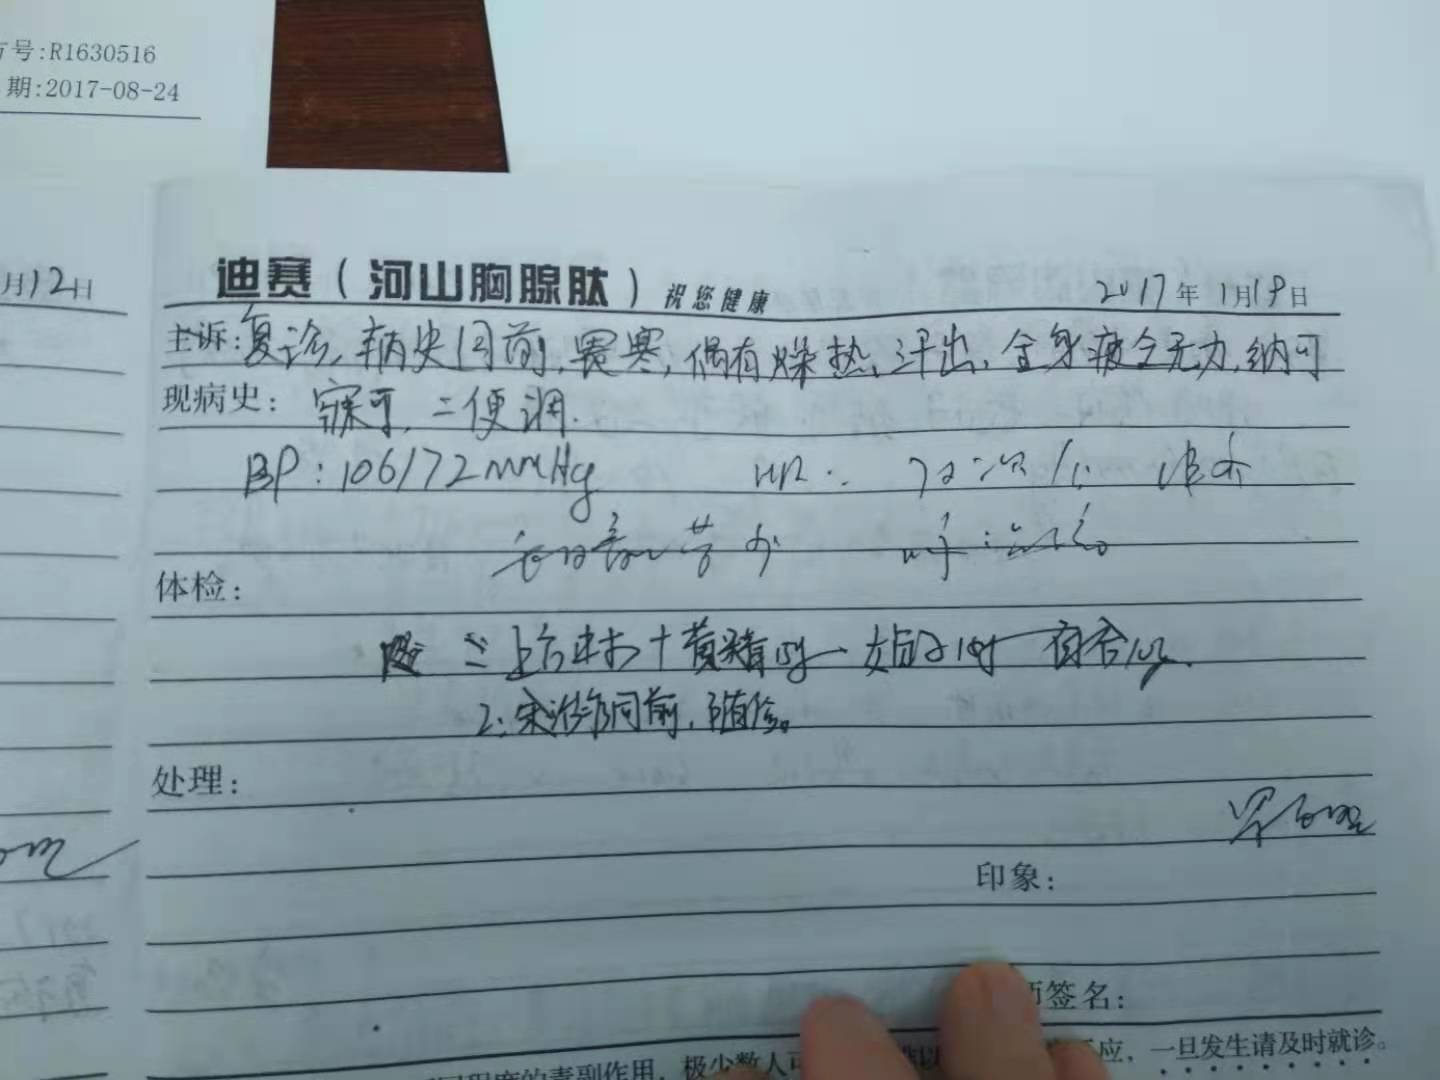 号:R1630516
期:2017-08-24
月12日
迪赛(河山胸腺肽)祝您健康 2017年1月19日
主诉:复诊,病史同前,畏寒,偶有燥热、汗出、全身疲乏无力,纳可
现病史: 寐可,二便调.
BP:106/72mmHg HR: 72次/分 律齐
体检:
上方 + 黄精15g 百合
2. 治疗同前,随诊。
处理:
印象:
签名:
程度的毒副作用,极少数人可 应,一旦发生请及时就诊。